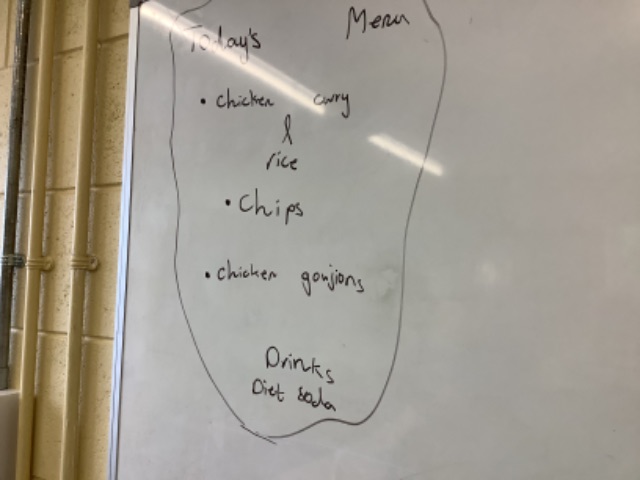 Today's Menu
• chicken curry
&
rice
• Chips
• chicken gonjions
Drinks
Diet soda